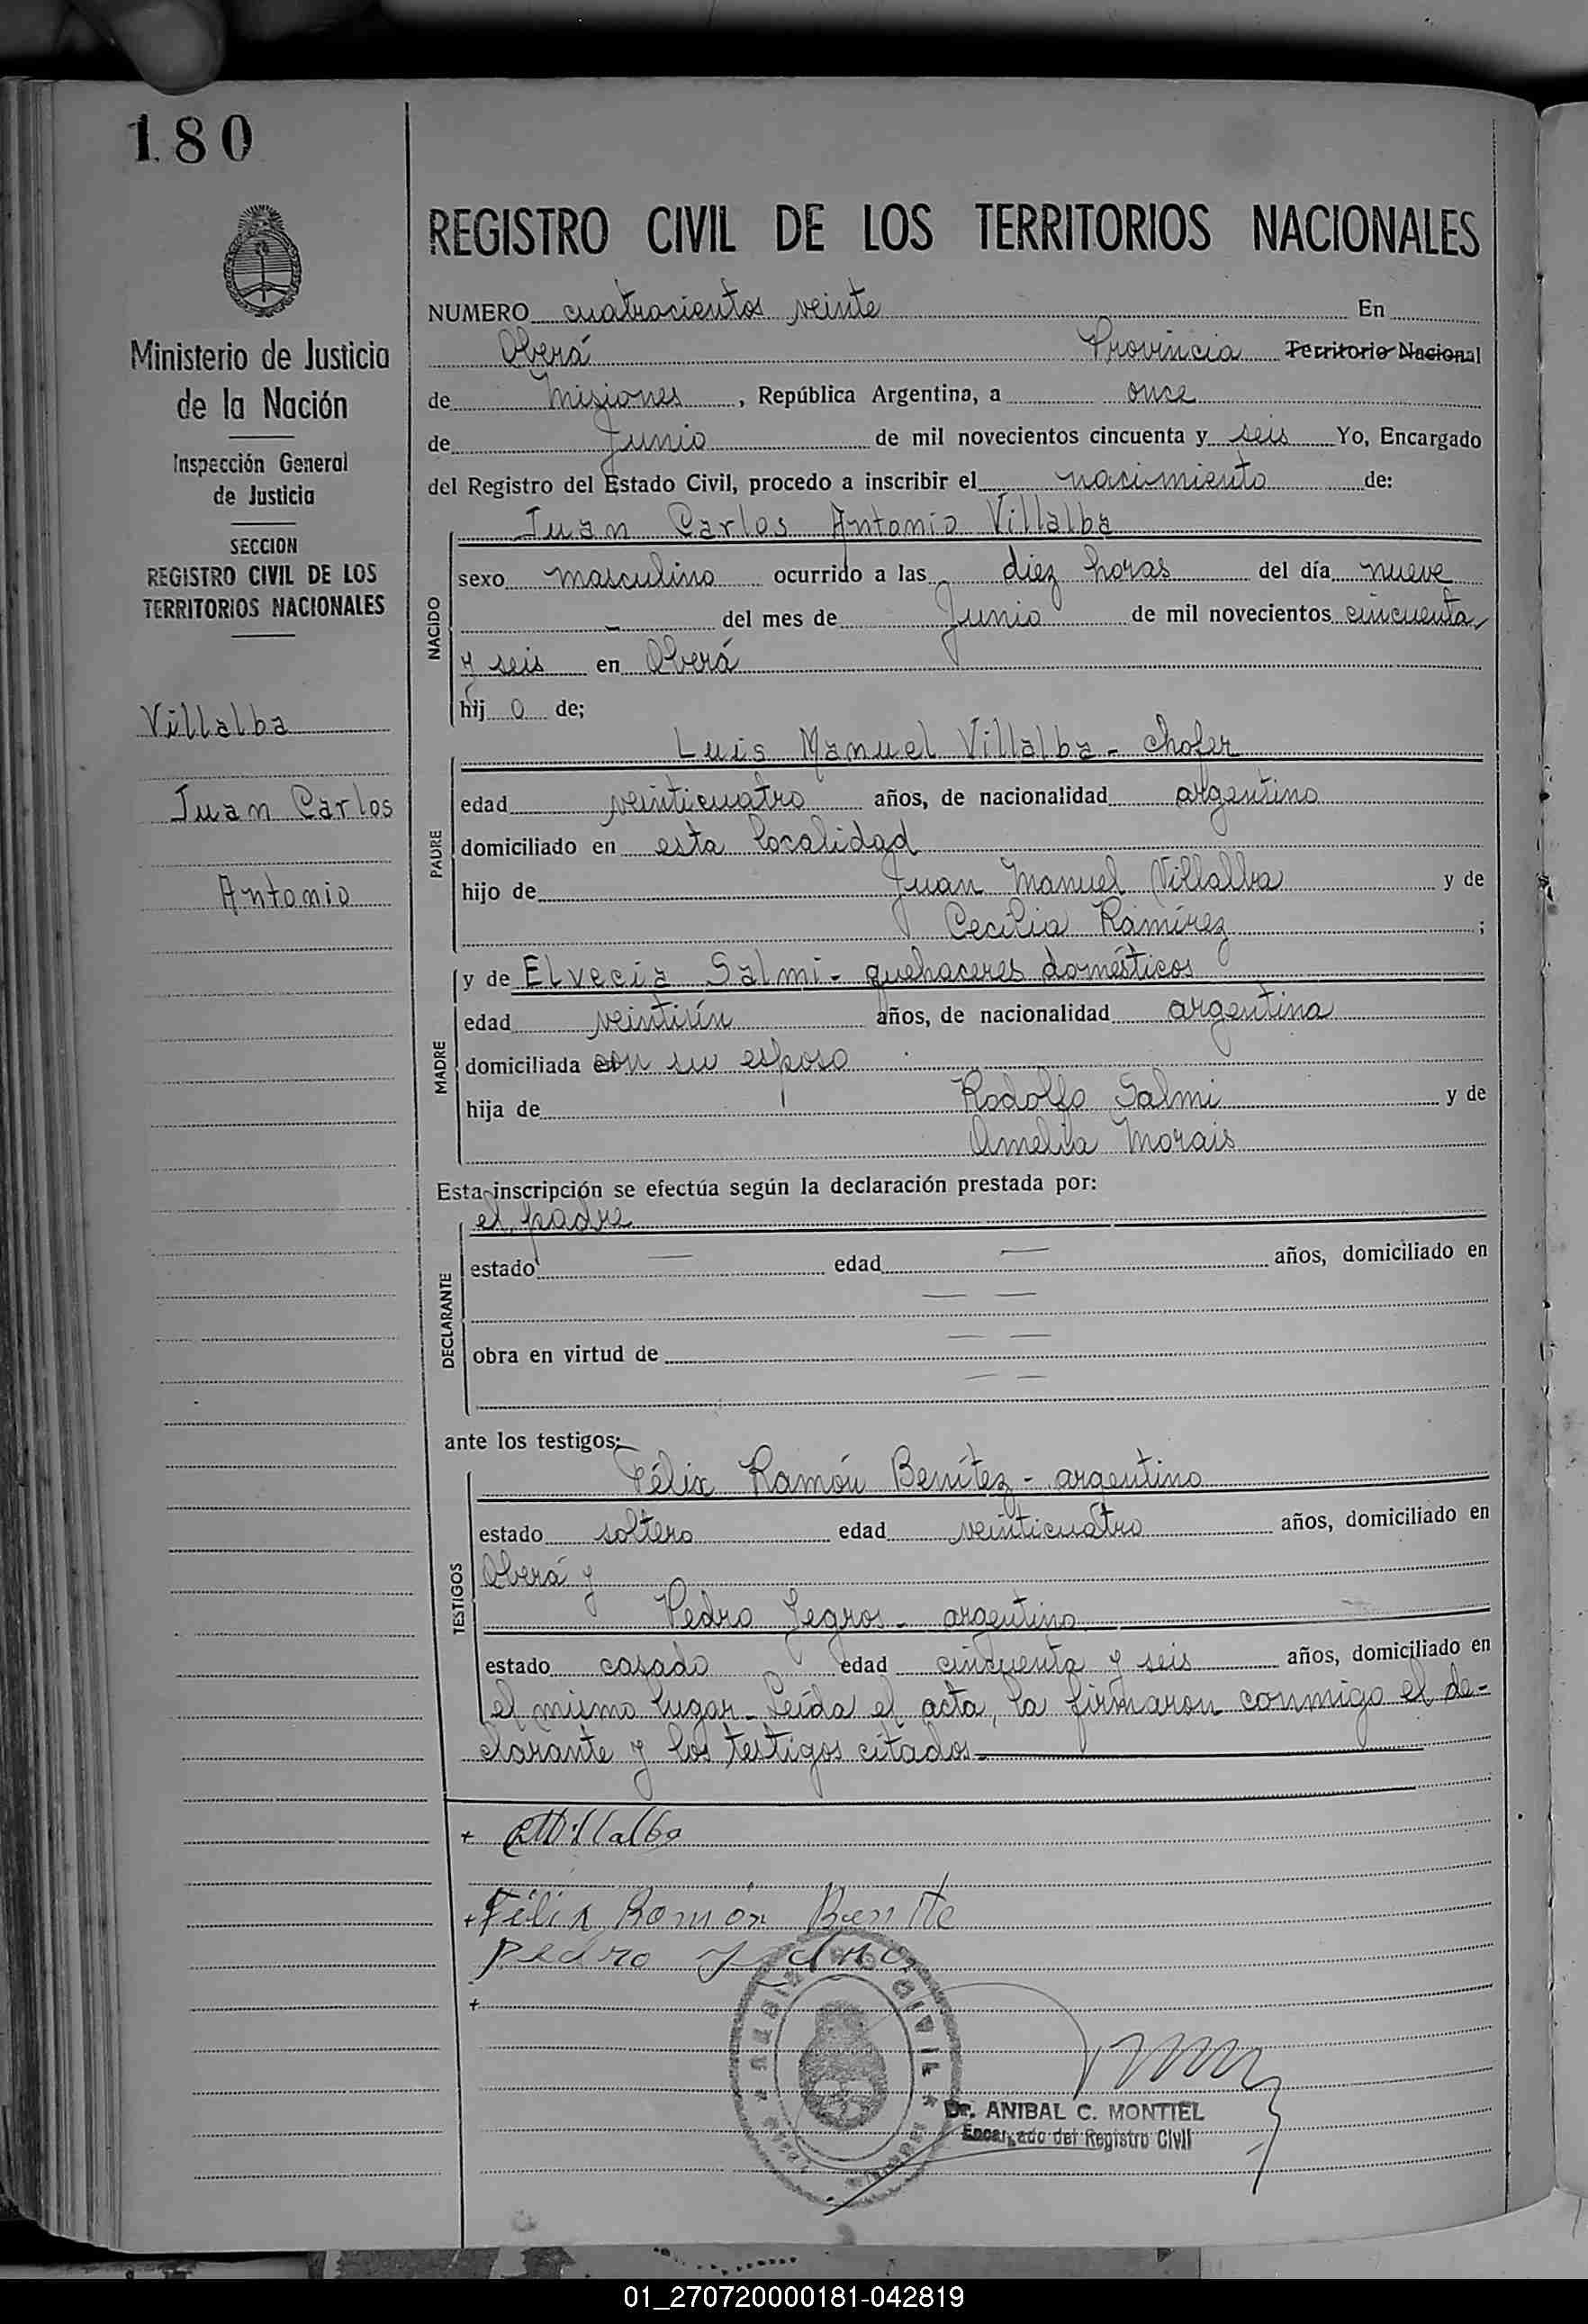 180
Ministerio de Justicia
de la Nación
Inspección General
de Justicia
SECCION
REGISTRO CIVIL DE LOS
TERRITORIOS NACIONALES
Villalba
Juan Carlos
Antonio
REGISTRO CIVIL DE LOS TERRITORIOS NACIONALES
NUMERO cuatrocientos veinte En
Oberá Provincia Territorio Nacional
de Misiones, República Argentina, a once
de Junio de mil novecientos cincuenta y seis Yo, Encargado
del Registro del Estado Civil, procedo a inscribir el nacimiento de:
Juan Carlos Antonio Villalba
NACIDO
sexo masculino ocurrido a las diez horas del día nueve
— del mes de Junio de mil novecientos cincuenta
y seis en Oberá
hij o de;
Luis Manuel Villalba - chofer
PADRE
edad veinticuatro años, de nacionalidad argentino
domiciliado en esta localidad
hijo de Juan Manuel Villalba y de
Cecilia Ramírez ;
y de Elvecia Salmi - quehaceres domésticos
MADRE
edad veintiún años, de nacionalidad argentina
domiciliada con su esposo
hija de Rodolfo Salmi y de
Amelia Morais
Esta inscripción se efectúa según la declaración prestada por:
el padre
DECLARANTE
estado — edad — años, domiciliado en
— —
obra en virtud de — —
— —
ante los testigos:
Félix Ramón Benítez - argentino
TESTIGOS
estado soltero edad veinticuatro años, domiciliado en
Oberá y
Pedro - argentino
estado casado edad cincuenta y seis años, domiciliado en
el mismo lugar - Leída el acta, la firmaron conmigo el de-
clarante y los testigos citados.
+ Villalba
+ Félix Ramón Benite
Pedro
+
REGISTRO CIVIL
Dr. ANIBAL C. MONTIEL
Encargado del Registro Civil
01_270720000181-042819